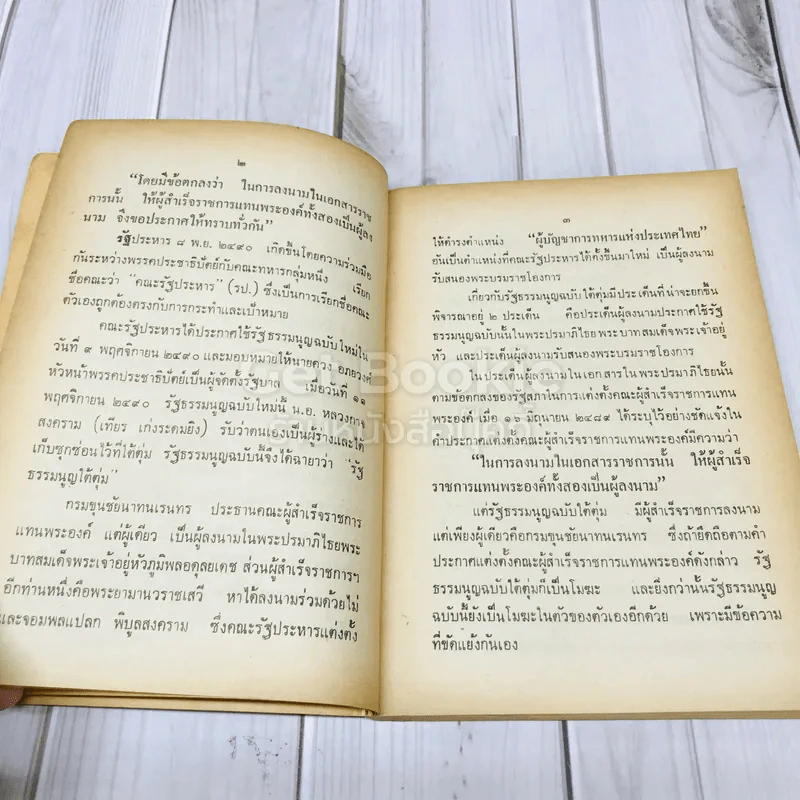 ๒
“โดยมีข้อตกลงว่า ในการลงนามในเอกสารราช
การนั้น ให้ผู้สำเร็จราชการแทนพระองค์ทั้งสองเป็นผู้ลง
นาม จึงขอประกาศให้ทราบทั่วกัน”
รัฐประหาร ๘ พ.ย. ๒๔๙๐ เกิดขึ้นโดยความร่วมมือ
กันระหว่างพรรคประชาธิปัตย์กับคณะทหารกลุ่มหนึ่ง เรียก
ชื่อคณะว่า “คณะรัฐประหาร” (รป.) ซึ่งเป็นการเรียกชื่อคณะ
ตัวเองถูกต้องตรงกับการกระทำและเป้าหมาย
คณะรัฐประหารได้ประกาศใช้รัฐธรรมนูญฉบับใหม่ใน
วันที่ ๙ พฤศจิกายน ๒๔๙๐ และมอบหมายให้นายควง อภยวงศ์
หัวหน้าพรรคประชาธิปัตย์เป็นผู้จัดตั้งรัฐบาล เมื่อวันที่ ๑๑
พฤศจิกายน ๒๔๙๐ รัฐธรรมนูญฉบับใหม่นี้ น.อ. หลวงกาจ
สงคราม (เทียร เก่งระดมยิง) รับว่าตนเองเป็นผู้ร่างและได้
เก็บซุกซ่อนไว้ที่ใต้ตุ่ม รัฐธรรมนูญฉบับนี้จึงได้ฉายาว่า “รัฐ
ธรรมนูญใต้ตุ่ม”
กรมขุนชัยนาทนเรนทร ประธานคณะผู้สำเร็จราชการ
แทนพระองค์ แต่ผู้เดียว เป็นผู้ลงนามในพระปรมาภิไธยพระ
บาทสมเด็จพระเจ้าอยู่หัวภูมิพลอดุลยเดช ส่วนผู้สำเร็จราชการฯ
อีกท่านหนึ่งคือพระยามานวราชเสวี หาได้ลงนามร่วมด้วยไม่
และจอมพลแปลก พิบูลสงคราม ซึ่งคณะรัฐประหารแต่งตั้ง
๓
ให้ดำรงตำแหน่ง “ผู้บัญชาการทหารแห่งประเทศไทย”
อันเป็นตำแหน่งที่คณะรัฐประหารได้ตั้งขึ้นมาใหม่ เป็นผู้ลงนาม
รับสนองพระบรมราชโองการ
เกี่ยวกับรัฐธรรมนูญฉบับใต้ตุ่มมีประเด็นที่น่าจะยกขึ้น
พิจารณาอยู่ ๒ ประเด็น คือประเด็นผู้ลงนามประกาศใช้รัฐ
ธรรมนูญฉบับนั้นในพระปรมาภิไธยพระบาทสมเด็จพระเจ้าอยู่
หัว และประเด็นผู้ลงนามรับสนองพระบรมราชโองการ
ในประเด็นผู้ลงนามในเอกสารในพระปรมาภิไธยนั้น
ตามข้อตกลงของรัฐสภาในการแต่งตั้งคณะผู้สำเร็จราชการแทน
พระองค์ เมื่อ ๑๖ มิถุนายน ๒๔๘๙ ได้ระบุไว้อย่างชัดแจ้งใน
คำประกาศแต่งตั้งคณะผู้สำเร็จราชการแทนพระองค์มีความว่า
“ในการลงนามในเอกสารราชการนั้น ให้ผู้สำเร็จ
ราชการแทนพระองค์ทั้งสองเป็นผู้ลงนาม”
แต่รัฐธรรมนูญฉบับใต้ตุ่ม มีผู้สำเร็จราชการลงนาม
แต่เพียงผู้เดียวคือกรมขุนชัยนาทนเรนทร ซึ่งถ้ายึดถือตามคำ
ประกาศแต่งตั้งคณะผู้สำเร็จราชการแทนพระองค์ดังกล่าว รัฐ
ธรรมนูญฉบับใต้ตุ่มก็เป็นโมฆะ และยิ่งกว่านั้นรัฐธรรมนูญ
ฉบับนี้ยังเป็นโมฆะในตัวของตัวเองอีกด้วย เพราะมีข้อความ
ที่ขัดแย้งกันเอง